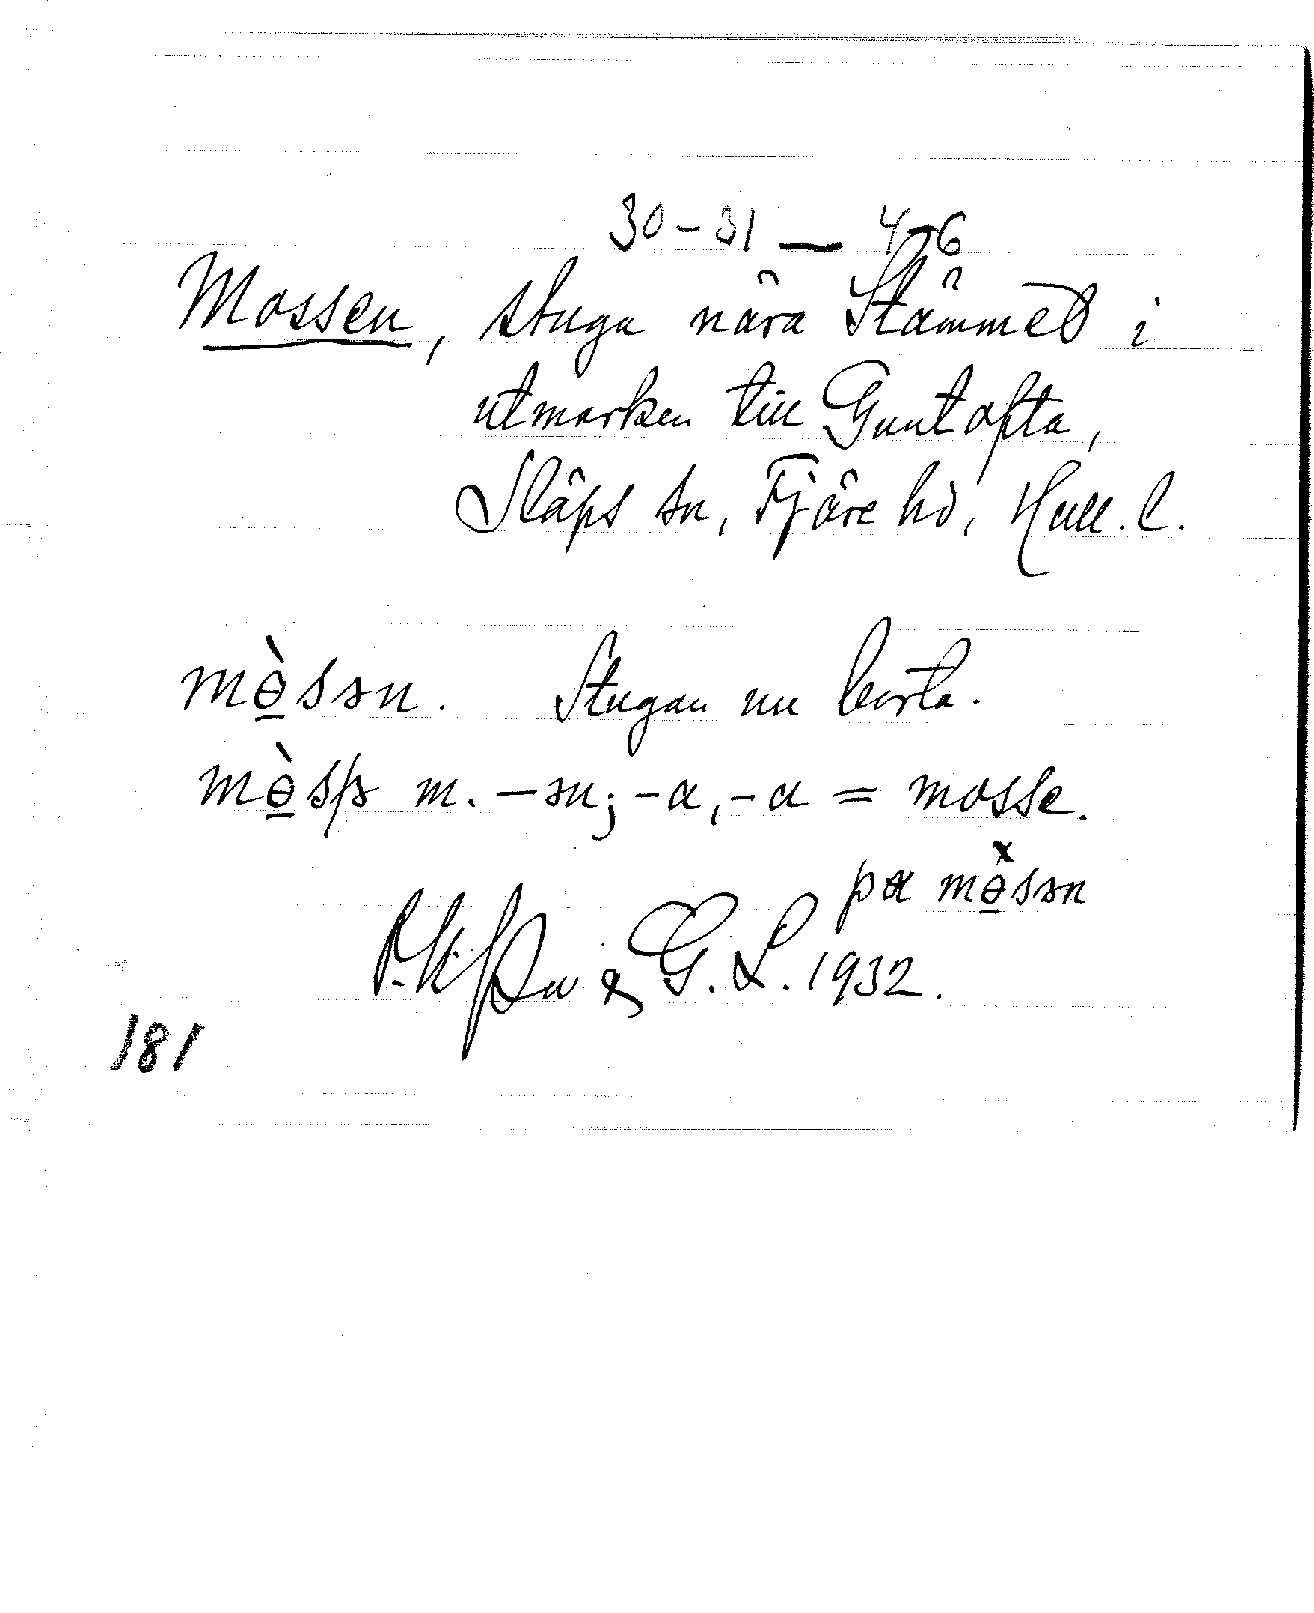 30-31 — 4-6
Mossen, stuga nära Stämmet i
utmarken till Guntofta,
Släps sn, Fjäre hd, Hall. l.
mɵ̀sən. Stugan nu borta.
mɵ̀s m. -ən; -a, -a = mosse.
pɑ mɵsən
& G. L. 1932.
181